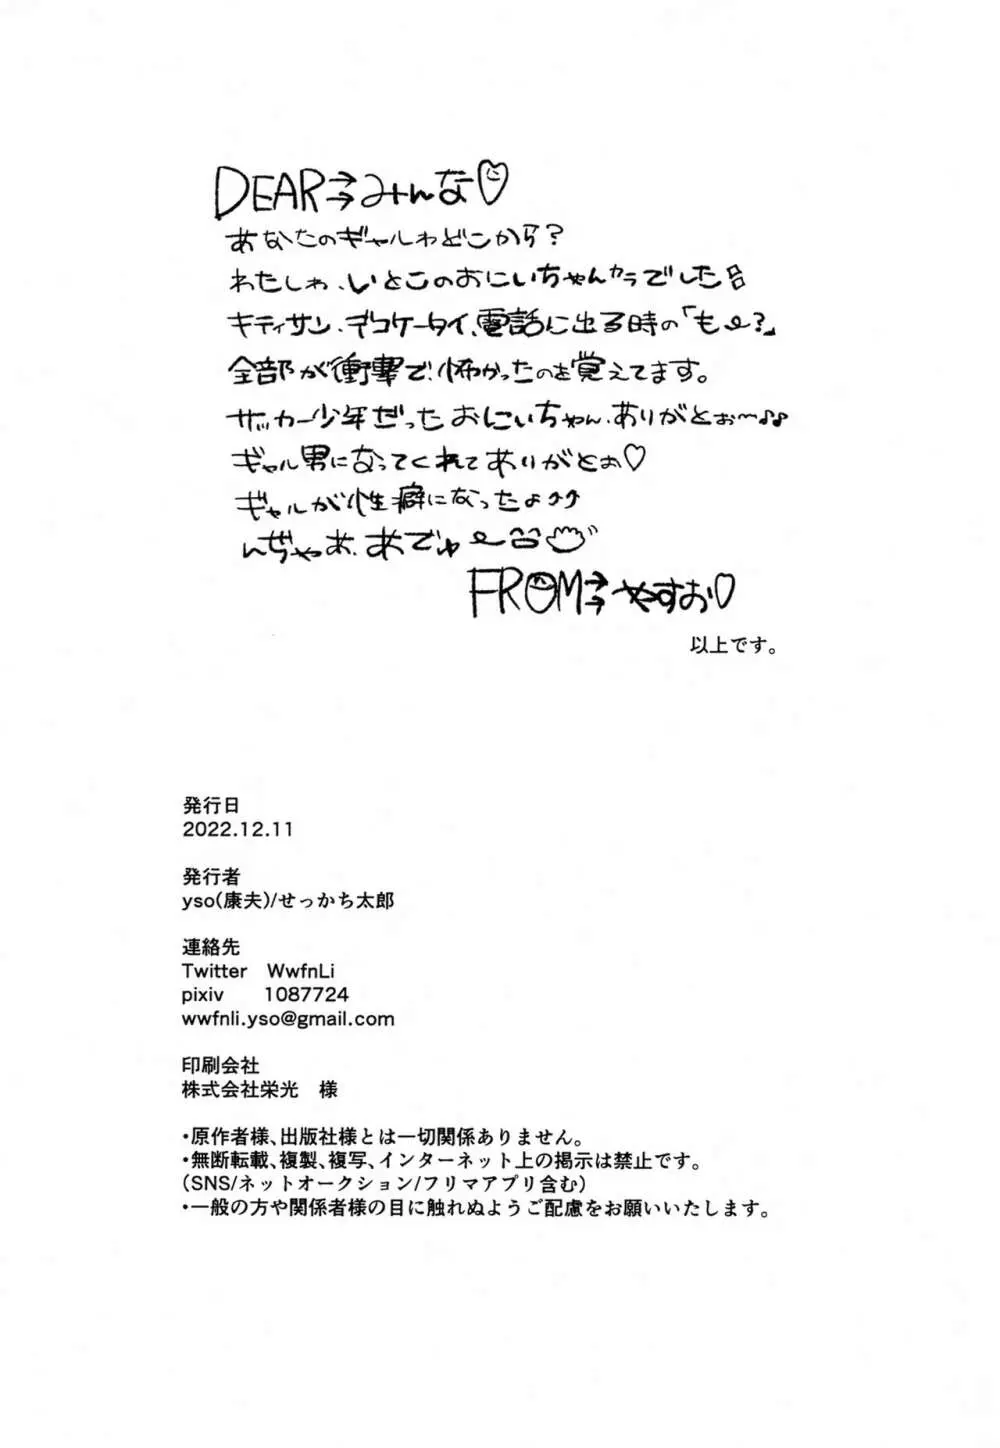 DEAR→→みんな♡
あなたのギャルわどこから?
わたしわ、いとこのおにいちゃんカラでした
キティサン、デコケータイ、電話に出る時の「もー?」
全部が衝撃で、怖かったのを覚えてます。
サッカー少年だったおにいちゃん、ありがとぉ〜♪♪
ギャル男になってくれてありがとぉ♡
ギャルが性癖になったよ♂♂
んぢゃあ、あでゅー
FROM→→やすお♡
以上です。
発行日
2022.12.11
発行者
yso(康夫)/せっかち太郎
連絡先
Twitter WwfnLi
pixiv 1087724
wwfnli.yso@gmail.com
印刷会社
株式会社栄光 様
・原作者様、出版社様とは一切関係ありません。
・無断転載、複製、複写、インターネット上の掲示は禁止です。
(SNS/ネットオークション/フリマアプリ含む)
・一般の方や関係者様の目に触れぬようご配慮をお願いいたします。